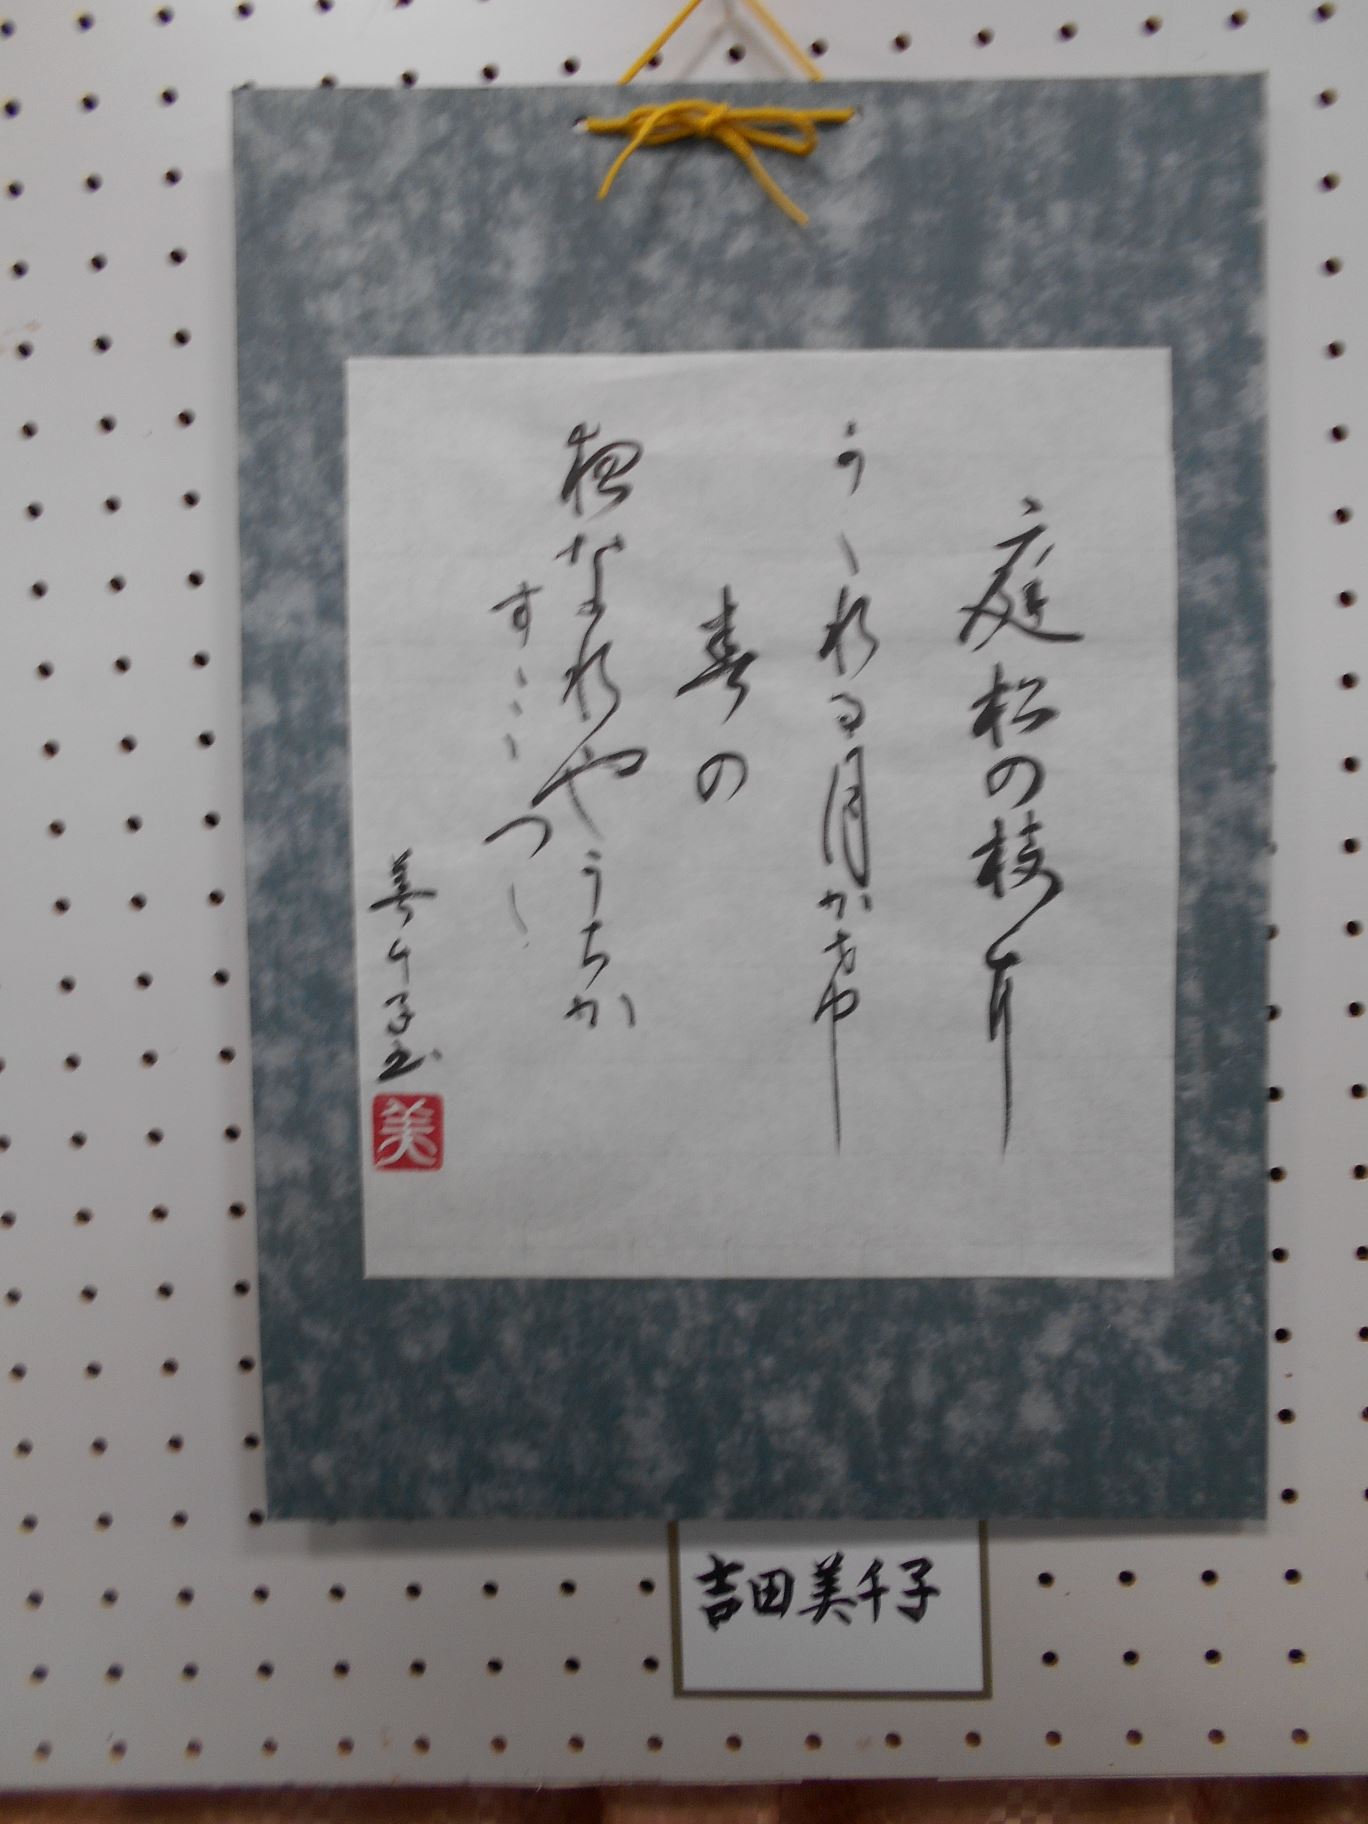 庭松の枝耳
うつれる月かさや
春の
夜なれやうちか
すミつゝ
美千子書
美
吉田美千子